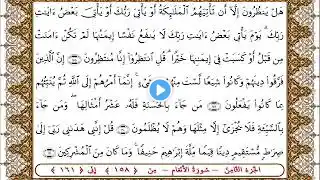 هَلْ يَنظُرُونَ إِلَّآ أَن تَأْتِيَهُمُ ٱلْمَلَٰٓئِكَةُ أَوْ يَأْتِىَ رَبُّكَ أَوْ يَأْتِىَ بَعْضُ ءَايَٰتِ
رَبِّكَ ۗ يَوْمَ يَأْتِى بَعْضُ ءَايَٰتِ رَبِّكَ لَا يَنفَعُ نَفْسًا إِيمَٰنُهَا لَمْ تَكُنْ ءَامَنَتْ
مِن قَبْلُ أَوْ كَسَبَتْ فِىٓ إِيمَٰنِهَا خَيْرًا ۗ قُلِ ٱنتَظِرُوٓا۟ إِنَّا مُنتَظِرُونَ ١٥٨ إِنَّ ٱلَّذِينَ
فَرَّقُوا۟ دِينَهُمْ وَكَانُوا۟ شِيَعًا لَّسْتَ مِنْهُمْ فِى شَىْءٍ ۚ إِنَّمَآ أَمْرُهُمْ إِلَى ٱللَّهِ ثُمَّ يُنَبِّئُهُم
بِمَا كَانُوا۟ يَفْعَلُونَ ١٥٩ مَن جَآءَ بِٱلْحَسَنَةِ فَلَهُۥ عَشْرُ أَمْثَالِهَا ۖ وَمَن جَآءَ
بِٱلسَّيِّئَةِ فَلَا يُجْزَىٰٓ إِلَّا مِثْلَهَا وَهُمْ لَا يُظْلَمُونَ ١٦٠ قُلْ إِنَّنِى هَدَىٰنِى رَبِّىٓ إِلَىٰ
صِرَٰطٍ مُّسْتَقِيمٍ دِينًا قِيَمًا مِّلَّةَ إِبْرَٰهِيمَ حَنِيفًا ۚ وَمَا كَانَ مِنَ ٱلْمُشْرِكِينَ ١٦١
الجزء الثامن - سورة الأنعام - من ﴿١٥٨﴾ إلى ﴿١٦١﴾